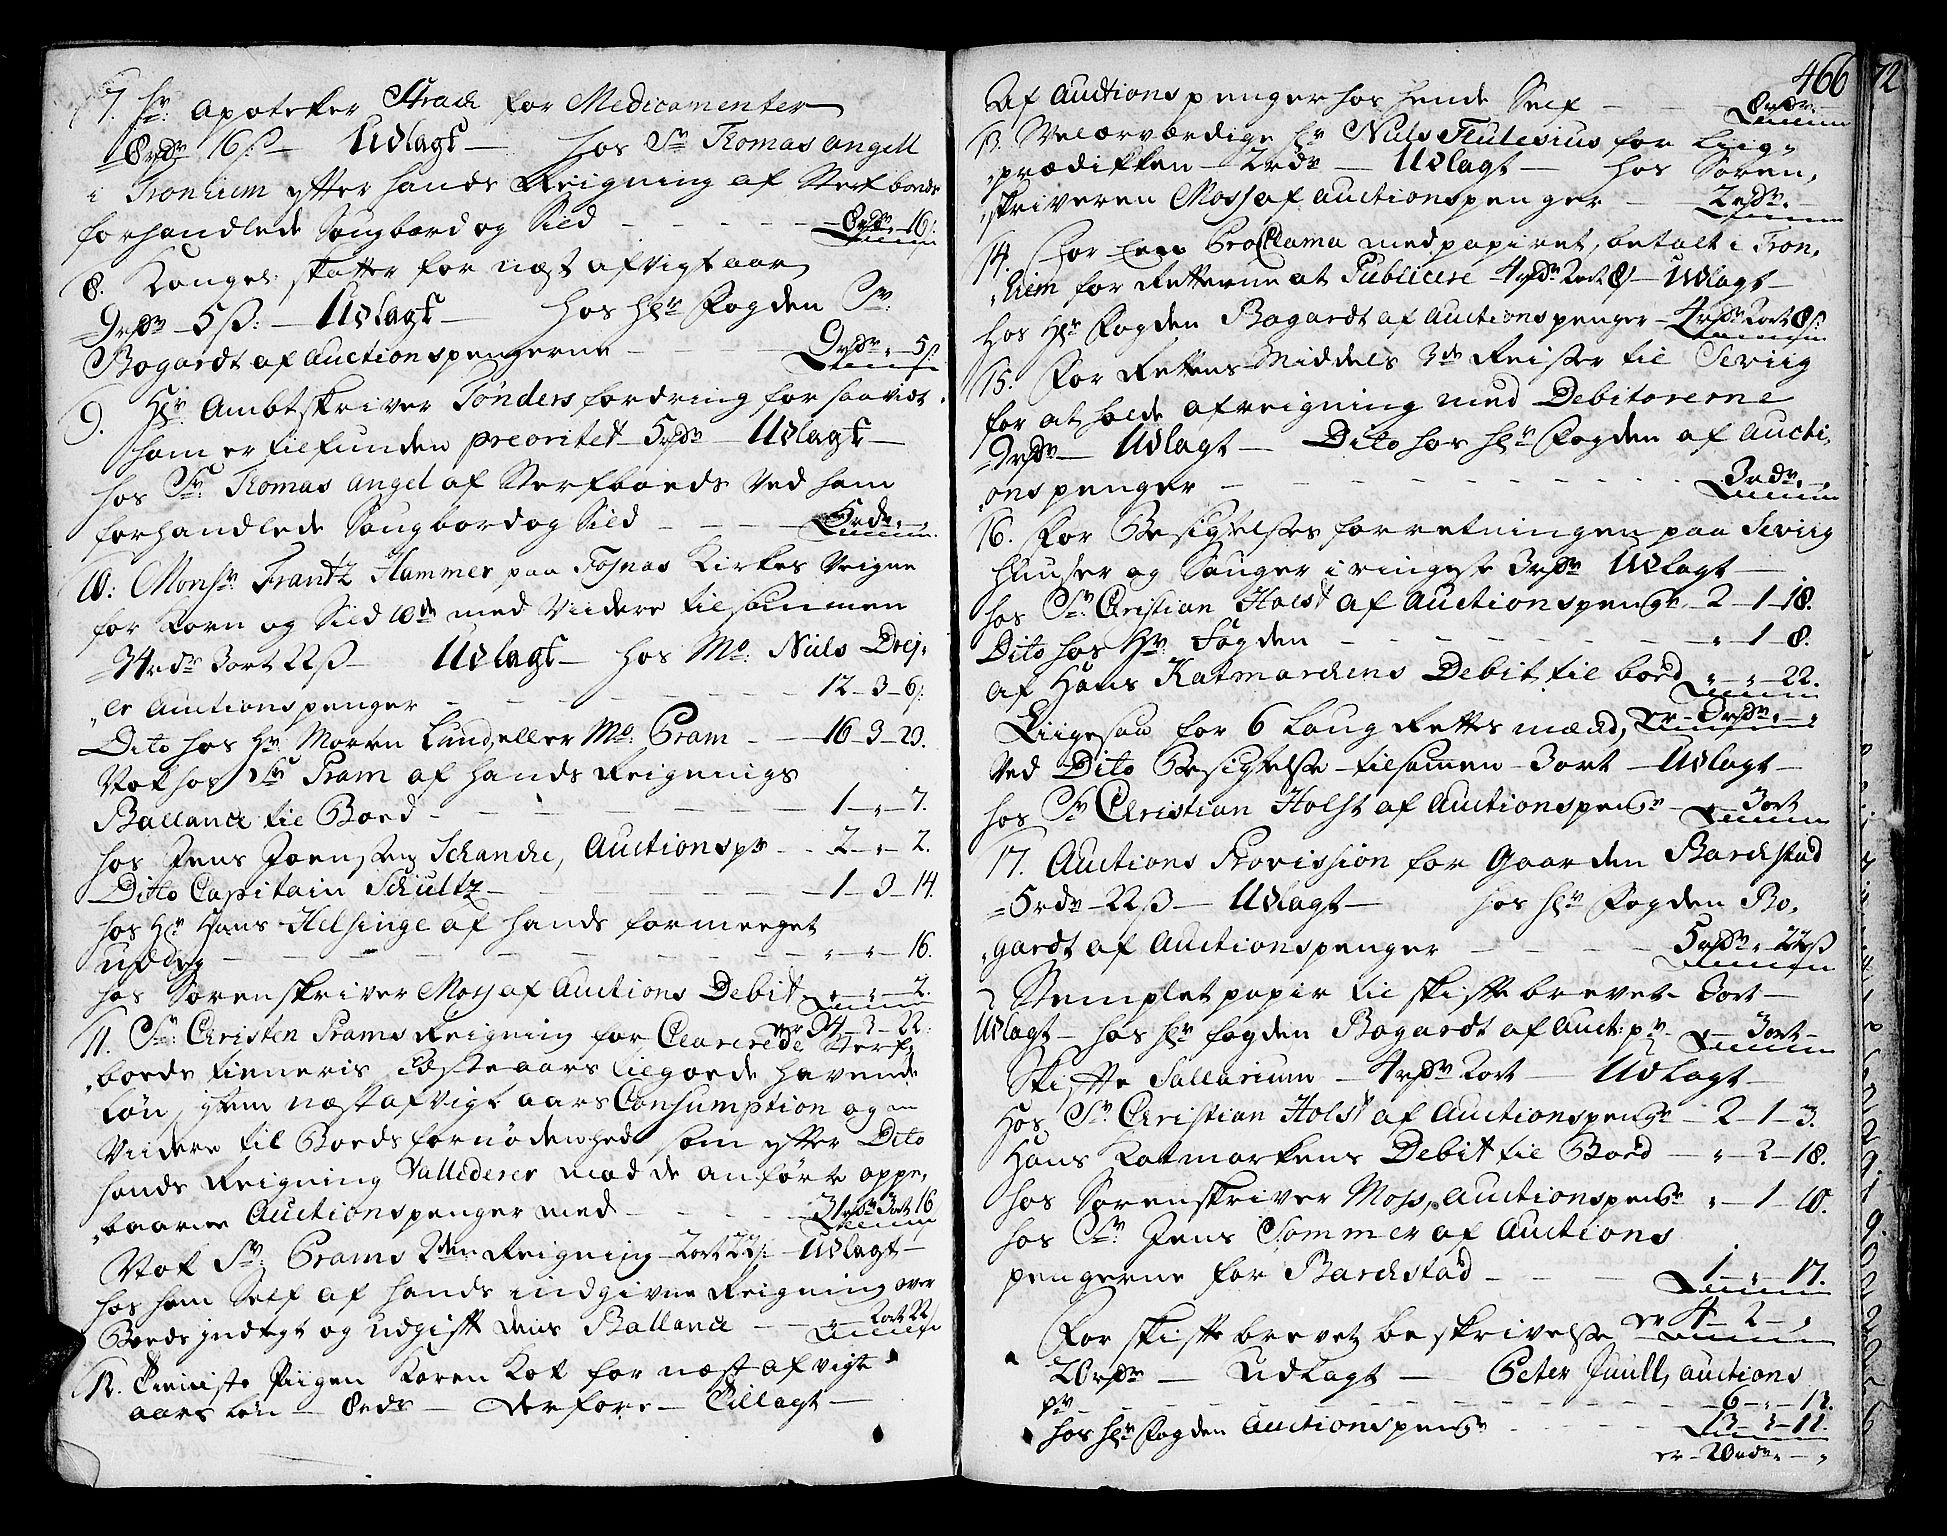 7. Hr: Apoteker Strach for Medicamenter
8rdr 16ß – Udlagt – hos Sr Tomas Angell
i Tronhiem efter hands Reigning af Sterfboeds
forhandlede Saugbord og Sild – – – 8rdr – 16ß
8. Kongel: skatter for næst afvigt aar
9rdr – 5ß: – Udlagt – hos Hr Fogden Sr:
Bogardt af auctionspengerne – – 9rdr „ – 5ß
9. Hr: Ambtskriver Tønders fordring for saavidt
ham er tilfunden preoritet 5rdr – Udlagt –
hos Sr: Tomas Angel af Sterfboeds ved ham
forhandlede Saugbord og Sild – – – 5rdr „ – „
10: Monsr Frantz Hammer paa Kirkes Veigne
for Korn og Sild med Viidere tilsammen
34rdr 3ort 22ß – Udlagt – hos Mr: Niels Drej„
„er Auctionspenger – – – 12 – 3 – 6ß
Dito hos Hr: Morten Lund, eller Mr: Pram – – 16 – 3 – 23.
Nok hos Sr Pram af hands Reignings
Ballance til Boed – – – 1 – „ – 7.
hos Jens Joensen Schanche, Auctionspr – – 2 – „ – 2.
Dito Capitain Schultz – – – 1 – 3 – 14.
hos Hr Hans Helsinge af hands formeeget
udleg – – – „ – „ – 16.
hos Sorenskriver Mossaf Auctions Debit „ – „ – 2.
er 34 – 3 – 22.
11. Sr: Christen Prams Reigning for Clarerede Sterf„
„boeds tienneris aars tilgoede havende
Løn, item næst afvigt aars Consumption og
Viidere til Boeds fornødenhed som efter Dito
hands Reigning Vallederer mod de anførte oppe„
„baarne Auctionspenger med – – – 31rdr 3ort 16
Nok Sr: Prams 2den Reigning – 2ort 22ß – Udlagt –
hos ham Self af hands indgivne Reigning over
Boeds indtegt og udgift dens Ballance – – „ 2ort 22ß
12. Tieniste Piigen Karen Kok for næst afvigt
aars Løn – 8rdr – derfore – Tillagt –
466
72
Af Auctionspenger hos hende Self – – – 8rdr „ –
13. Velærværdige Hr Niels for Liig„
„prædikken – 2rdr – Udlagt – hos Soren„
„skriveren Moss af auctionspenger – – 2rdr „ –
14. For Een Proclama med papiret, betalt i Tron„
„hiem for Retterne at Publicere 4rdr 2ort 8ß – Udlagt –
hos Hr Fogden Bogardt af Auctionspenger – 4rdr 2ort 8ß
15. For Rettens Middels 3de Reiser til Leviig
for at holde afreigning med Debitorerne
Udlagt – Dito hos Hr Fogden af Aucti„
„onspenger – – – 3rdr „ – „
16. For Besigtelses forretningen paa Leviig
Huuser og Sauger i ringeste 3rdr Udlagt –
hos Sr Christian Holst af Auctionspengr – 2 – 1 – 18.
Dito hos Hr: Fogden – – – „ – 1 – 8.
af Hans Katmarchens Debit til boed „ – „ – 22.
er – 3rdr „ – „
Liigesaa for 6 Laug Retts mænd,
ved Dito Besigtelse – tilsamen – 3ort – Udlagt –
hos Sr Christian Holst af Auctionspengr – „ 3ort
17. Auctions Provission for Gaarden Barchstad
5rdr – 22ß – Udlagt – hos Hr Fogden Bo„
„gardt af Auctionspenger – – – 5rdr „ 22ß
Stemplet papir til skifte brevet – 3ort –
Udlagt – hos Hr fogden Bogardt af Auct: pr – „ 3ort –
Skifte Sallarium – 4rdr 2ort – Udlagt –
Hos Sr Christian Holst af Auctionspengr – 2 – 1 – 3.
Hans Katmarkens Debit til Boed – „ – 2 – 18.
hos Sorenskriver Moss, Auctionspengr „ – 1 – 10.
hos Sr: Jens Sommer af Auctions
pengerne for Barchstad – – 1 – „ – 17.
er 4 – 2 – „
For skifte brevetz beskrivelse
20rdr – Udlagt – Peter Juull, auctions
pr – – – 6 – „ – 13.
hos Hr Fogden Auctionspengr – – 13 – 3 – 11.
er – 20rdr „ – „